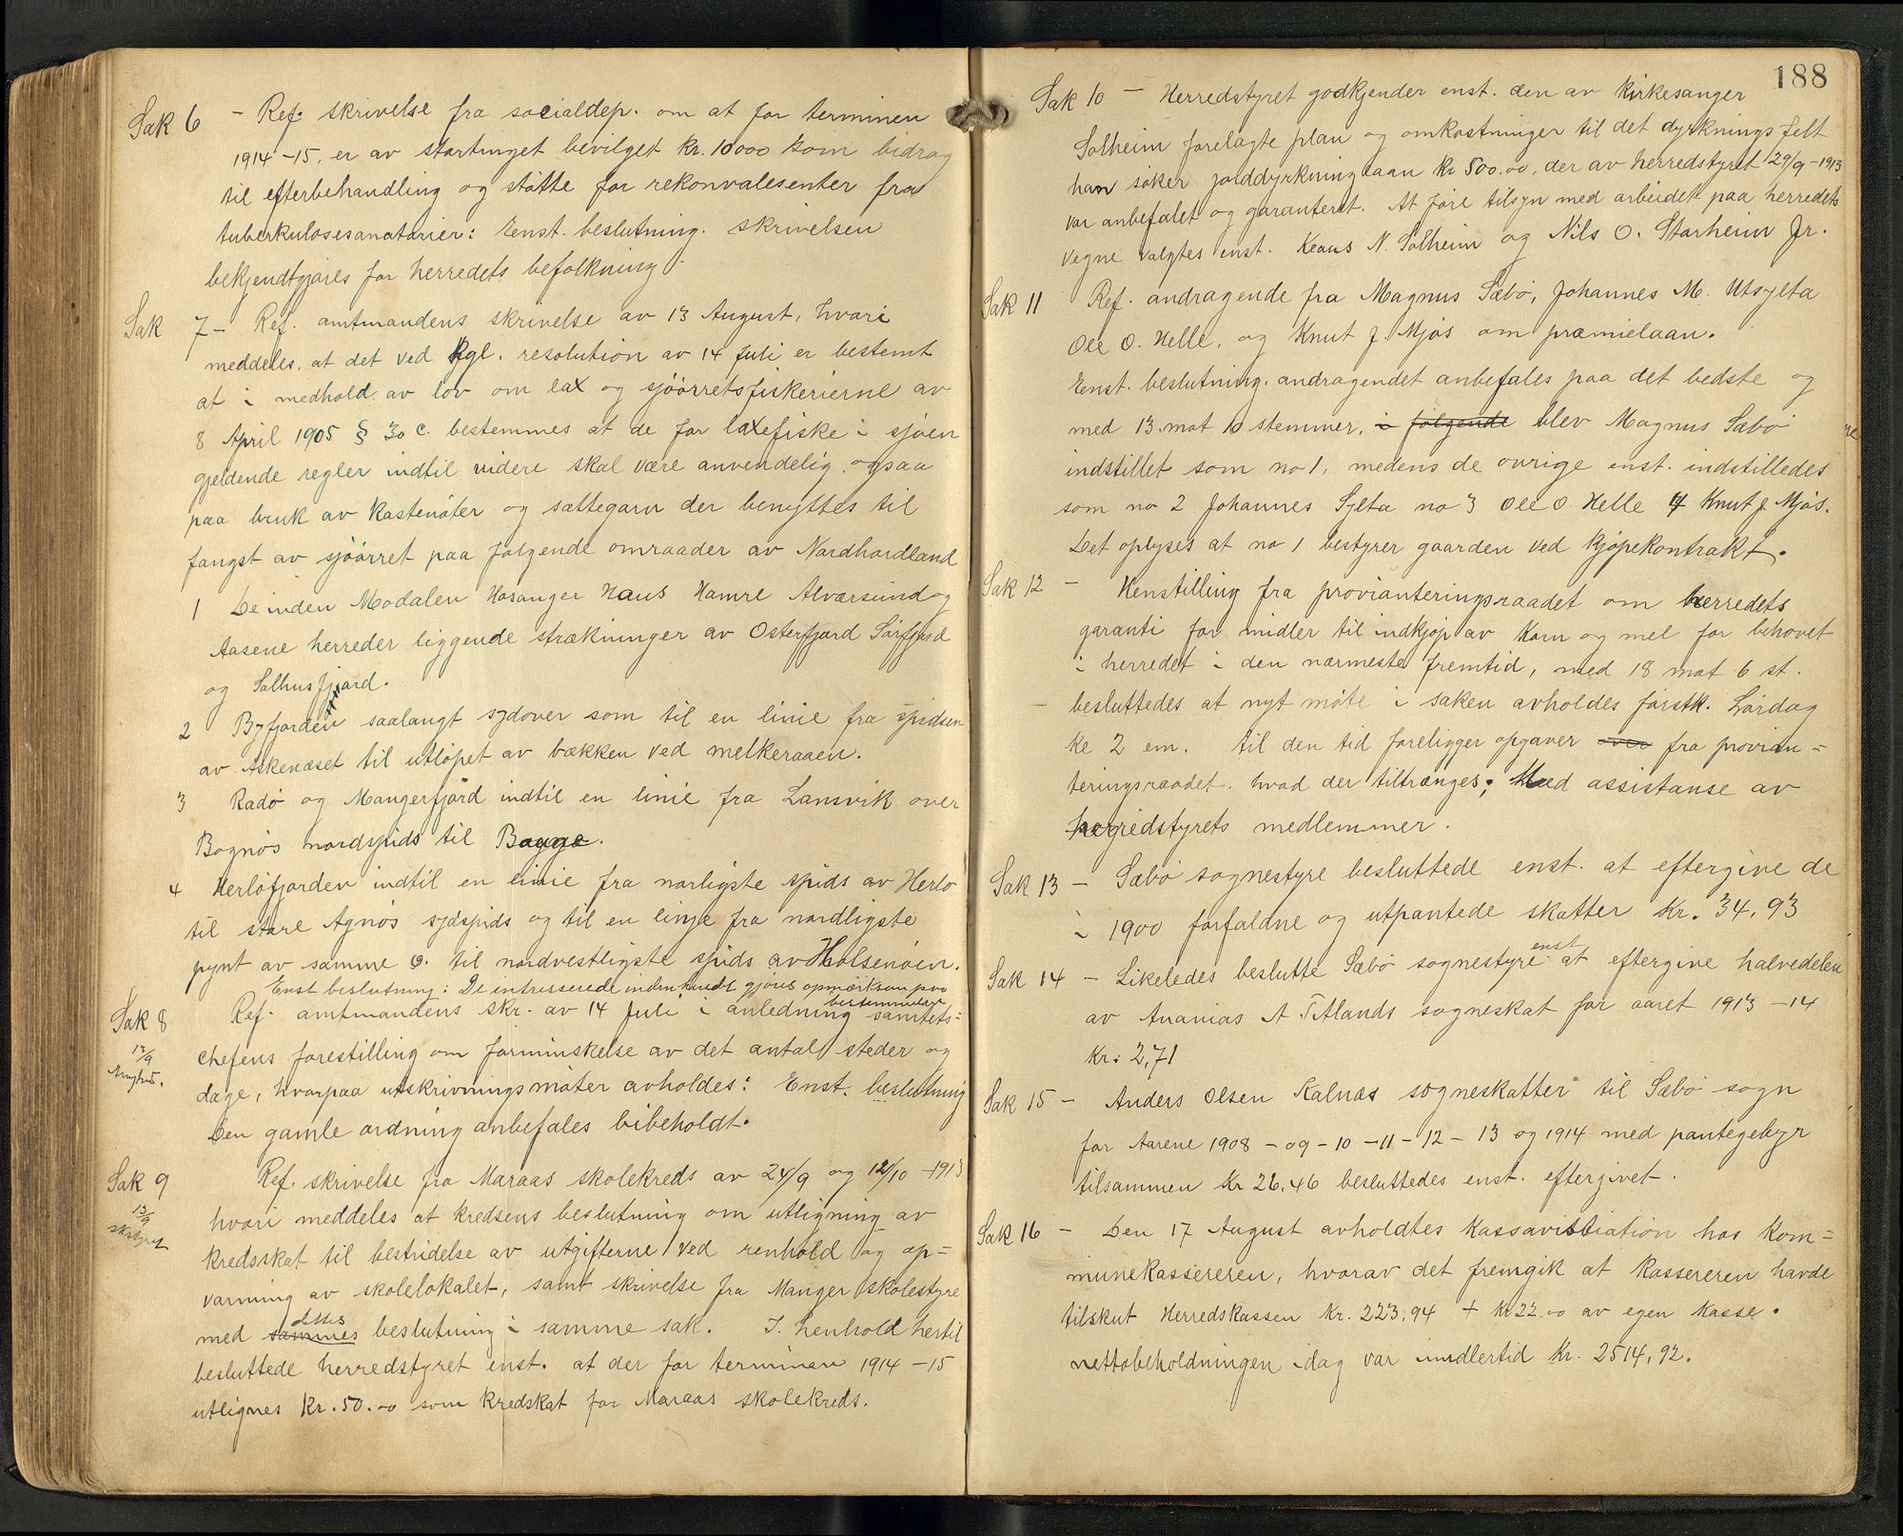 Sak 6 - Ref. skrivelse fra socialdep. om at for terminen
1914-15, er av stortinget bevilget kr. 10000 som bidrag
til efterbehandling og støtte for rekonvalesenter fra
tuberkulosesanatorier: Enst. beslutning. skrivelsen
bekjendtgjøres for herredets befolkning.
Sak 7 - Ref. amtmandens skrivelse av 13 August, hvori
meddeles, at det ved Kgl. resolution av 14 juli er bestemt
at i medhold av lov om lax og sjöørretsfiskerierne av
8 April 1905 § 30 c. bestemmes at de for laxefiske i sjøen
gjeldende regler indtil videre skal være anvendelig ogsaa
paa bruk av kastenöter og sættegarn der benyttes til
fangst av sjöørret paa følgende omraader av Nordhordland
1 De inden Modalen Hosanger Haus Hamre Alværsund og
Aasene herreder liggende strækninger av Osterfjord Sörfjord
og Salhusfjord.
2 Byfjorden saalangt sydover som til en linie fra spidsen
av Askenæset til utløpet av bækken ved melkeraaen.
3 Radö og Mangerfjord indtil en linie fra Lansvik over
Bognös nordspids til Bøgge.
4 Herlöfjorden indtil en linie fra norligste spids av Herlo
til store Agnös sydspids og til en linje fra nordligste
pynt av samme ø. til nordvestligste spids av Holsenöen.
Enst beslutning: De intresserede indenherreds gjöres opmerksom paa
bestemmelsen
Sak 8 Ref. amtmandens skr. av 14 Juli i anledning samtets=
13/9
chefens forestilling om forminskelse av det antal steder og
dage, hvorpaa utskrivningsmöter avholdes: Enst. beslutning
Den gamle ordning anbefales bibeholdt.
Sak 9 Ref. skrivelse fra Maraas skolekreds av 24/9 og 12/10 - 1913
13/9
skstyret
hvori meddeles at kredsens beslutning om utligning av
kredsskat til bestridelse av utgifterne ved renhold og op=
varming av skolelokalet, samt skrivelse fra Manger skolestyre
med sammes dettes beslutning i samme sak. I henhold hertil
besluttede herredstyret enst. at der for terminen 1914-15
utlignes Kr. 50.00 som kredskat for Maraas skolekreds.
188
Sak 10 - Herredstyret godkjender enst. den av kirkesanger
Solheim forelagte plan og omkostninger til det dyrkningsfelt
han söker jorddyrkninglaan kr 500.00, der av herredstyret 29/9-1913
var anbefalet og garanteret. At före tilsyn med arbeidet paa herredets
vegne valgtes enst. Klaus N. Solheim og Nils O. Storheim Jr.
Sak 11 Ref. andragende fra Magnus Sæbö, Johannes M. Utsylta
Ole O. Helle, og Knut J. Mjøs om præmielaan.
Enst. beslutning. andragendet anbefales paa det bedste og
med 13 mot 10 stemmer, i følgende blev Magnus Sæbö
indstillet som no 1, medens de øvrige enst. indstilledes
som no 2 Johannes Sylta no 3 Ole O. Helle 4 Knut J Mjøs.
Det oplyses at no 1 bestyrer gaarden ved kjøpekontrakt.
Sak 12 - Henstilling fra provianteringsraadet om herredets
garanti for midler til indkjøp av Korn og mel for behovet
i herredet i den nærmeste fremtid, med 18 mot 6 st.
besluttedes at nyt möte i saken avholdes förstk. Lördag
kl 2 em. til den tid foreligger opgaver over fra provian=
teringsraadet. hvad der tiltrænges; Med assistanse av
herredstyrets medlemmer.
Sak 13 - Sæbö sognestyre besluttede enst. at eftergive de
i 1900 forfaldne og utpantede skatter Kr. 34,93
Sak 14 - Likeledes beslutte Sæbö sognestyre enst at eftergive halvedelen
av Ananias A Titlands sogneskat for aaret 1913-14
Kr: 2,71
Sak 15 - Anders Olsen Kalnæs sogneskatter til Sæbö sogn
for Aarene 1908-09-10-11-12-13 og 1914 med pantegebyr
tilsammen Kr 26,46 besluttedes enst. eftergivet.
Sak 16 - Den 17 August avholdtes Kassavisitiation hos Kom=
munekassereren, hvorav det fremgik at Kassereren havde
tilskut Herredskassen Kr. 223,94 + Kr 22.00 av egen Kasse.
nettobeholdningen idag var imidlertid Kr. 2514,92.